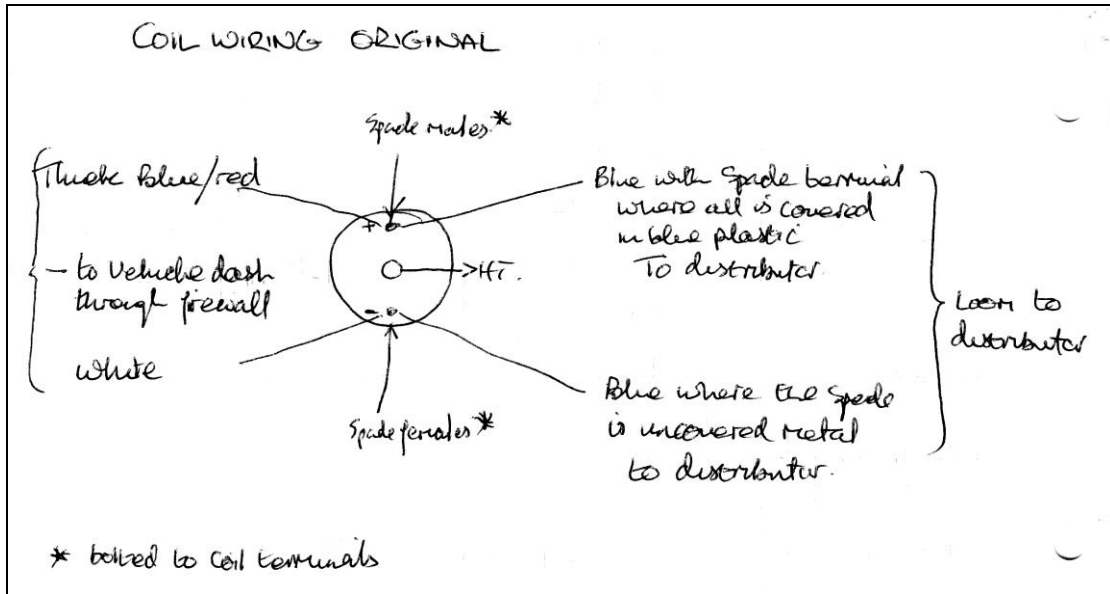 COIL WIRING ORIGINAL
Spade males *
Thick Blue/red
- to vehicle dash
through firewall
white
+
-
HT.
Spade females *
Blue with Spade terminal
where all is covered
in blue plastic
To distributor
Blue where the Spade
is uncovered metal
to distributor.
Loom to
distributor
* bolted to coil terminals